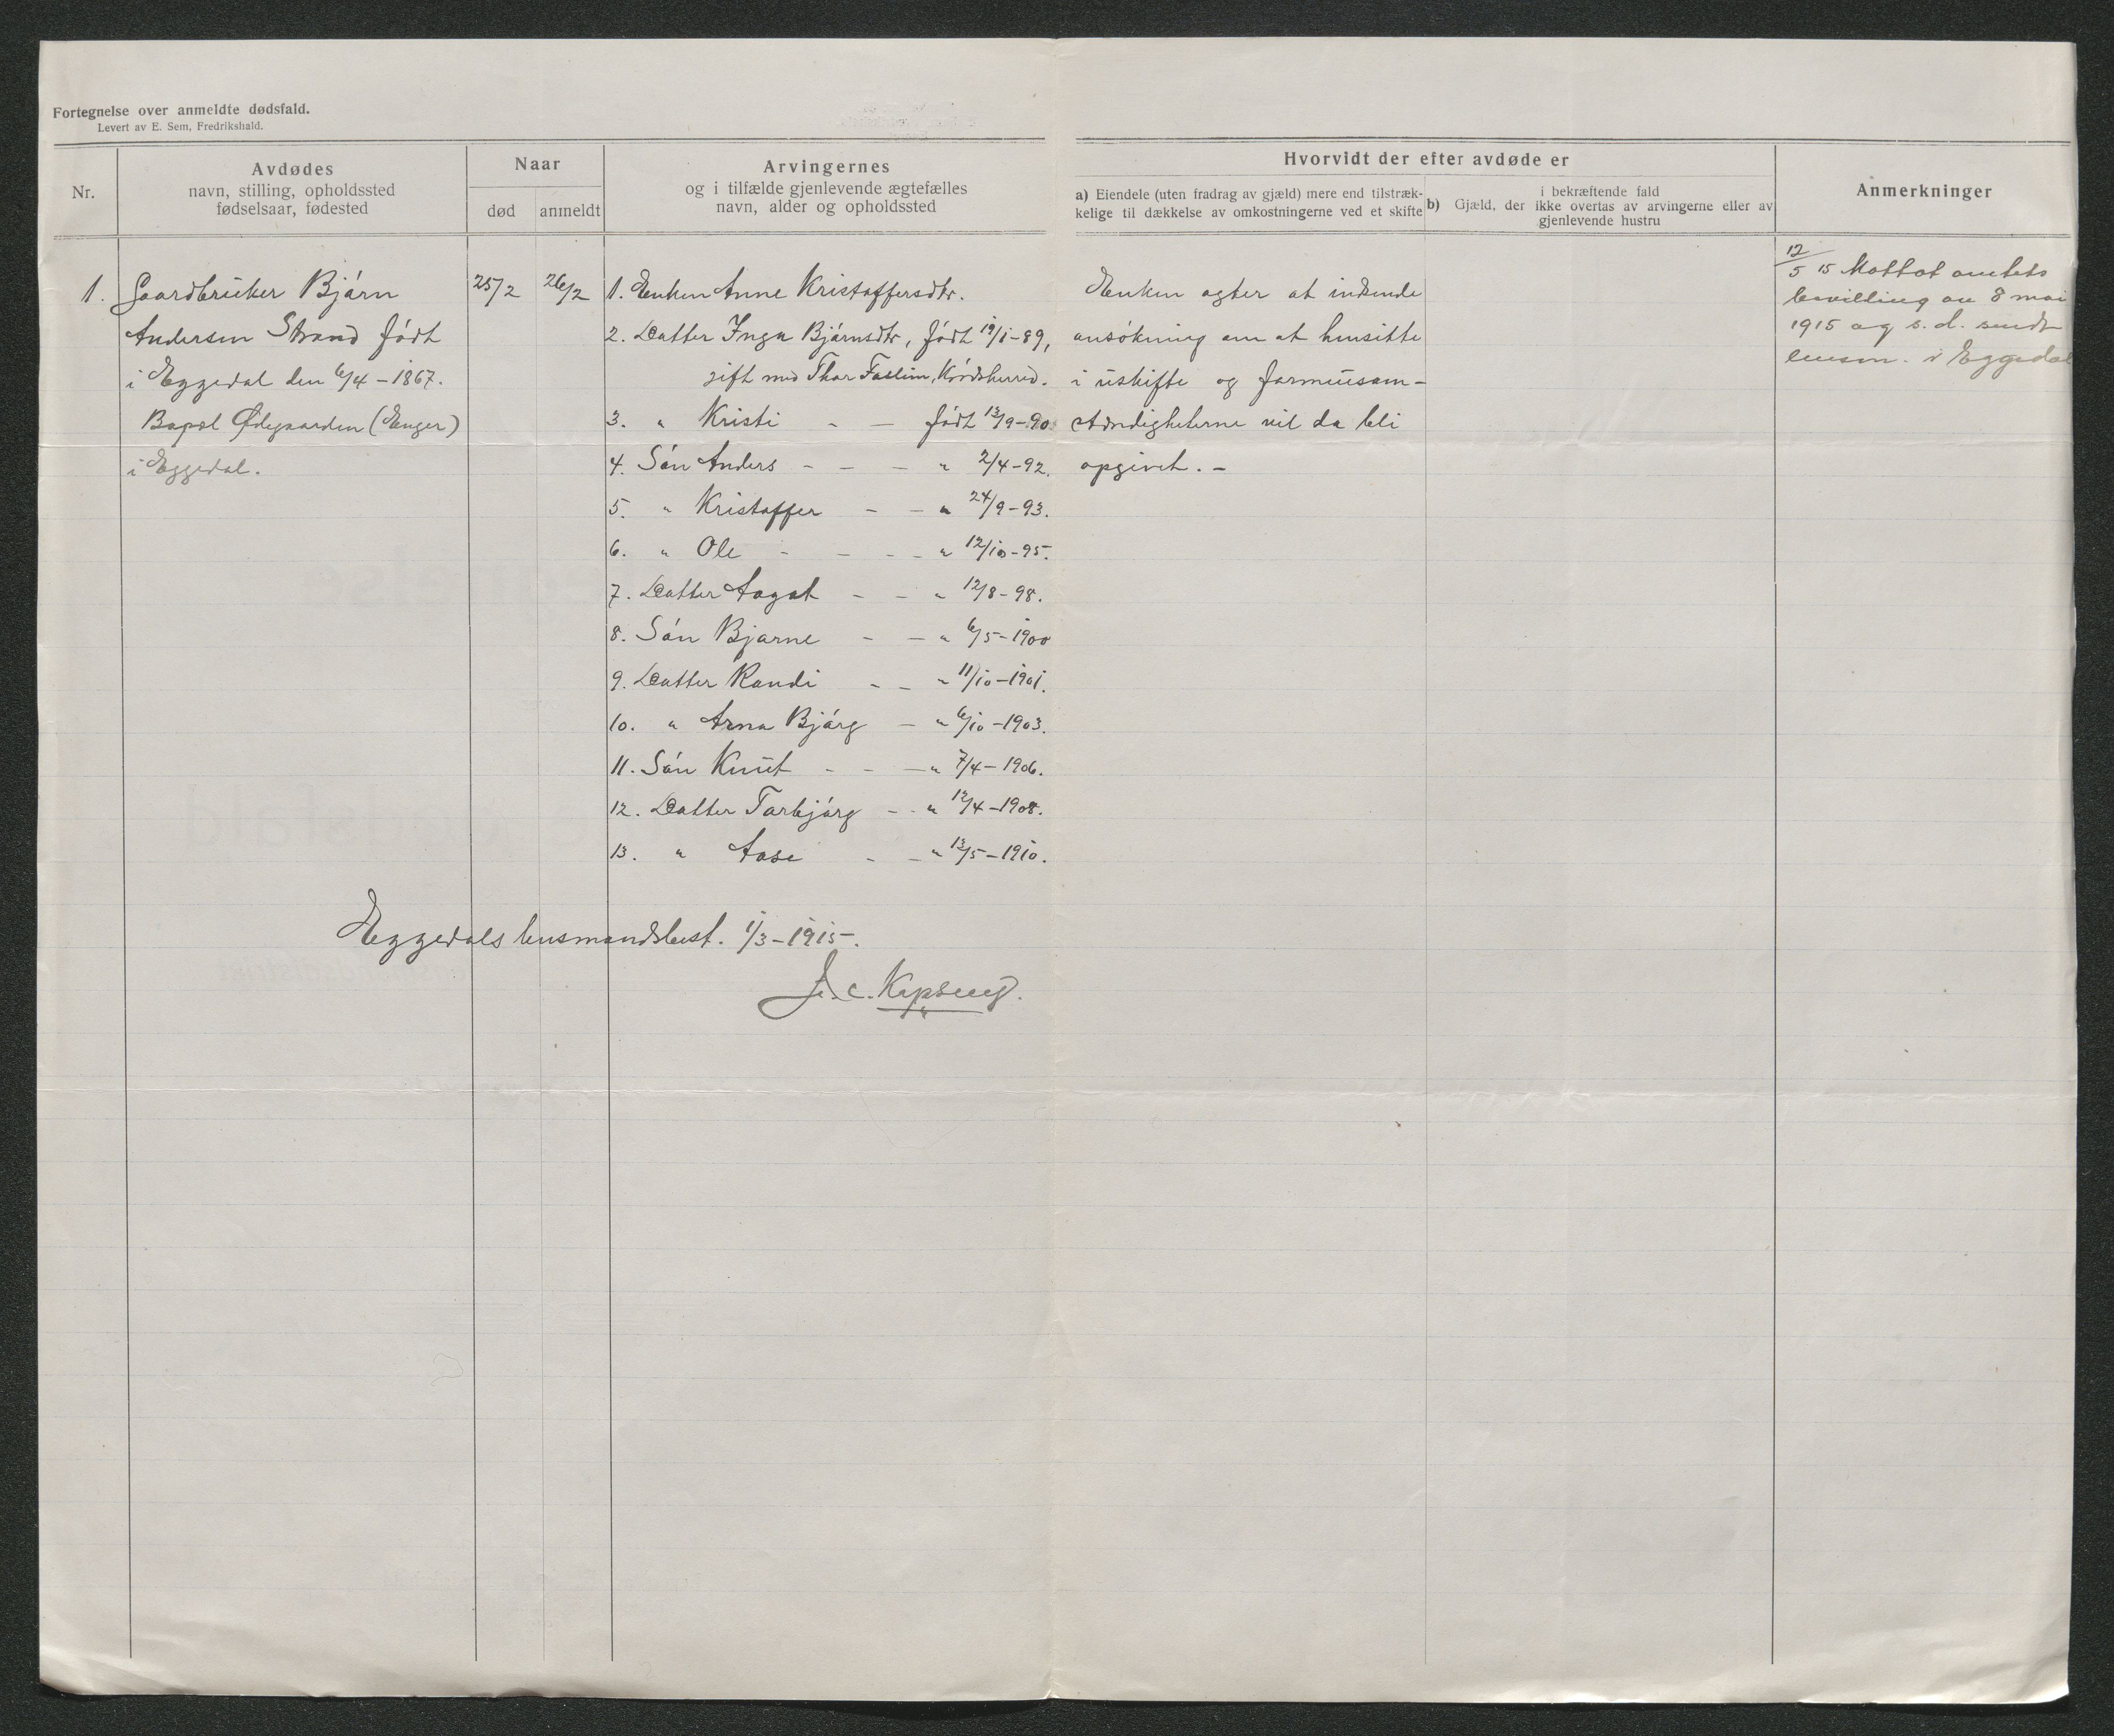 Fortegnelse over anmeldte dødsfald.
Levert av E. Sem, Fredrikshald.
Nr.
Avdødes
navn, stilling, opholdssted
fødselsaar, fødested
Naar
død
anmeldt
Arvingernes
og i tilfælde gjenlevende ægtefælles
navn, alder og opholdssted
Hvorvidt der efter avdøde er
a) Eiendele (uten fradrag av gjæld) mere end tilstræk-
kelige til dækkelse av omkostningerne ved et skifte
i bekræftende fald
b) Gjæld, der ikke overtas av arvingerne eller av
gjenlevende hustru
Anmerkninger
1.
Gaardbruker Bjørn
Andersen Strand født
i Eggedal den 6/4 - 1867.
Bopæl Ødegaarden (Enger)
i Eggedal.
25/2
26/2
1. Enken Anne Kristoffersdtr.
2. Datter Inga Bjørnsdtr, født 19/1-89,
gift med Thor , Krødsherred.
3. " Kristi - - født 13/9-90
4. Søn Anders - - - " 2/4-92.
5. " Kristoffer - - " 24/9-93.
6. " Ole - - - - " 12/10-95.
7. Datter Aagot - - " 12/8-98.
8. Søn Bjarne - - " 6/5-1900
9. Datter Randi - - " 11/10-1901.
10. " Arna Bjørg - " 6/10-1903.
11. Søn Knut - - - " 7/4-1906.
12. Datter Torbjørg - - " 12/4-1908.
13. " Aase - - " 13/5-1910.
Enken agter at indsende
ansøkning om at hensitte
i uskifte og formuesom-
stændigheterne vil da bli
opgivet. -
12/5 15 Mottat amtets
bevilling av 8 mai
1915 og s. d. sendt
lensm. i Eggedal
Eggedals lensmandsbest. 1/3-1915.